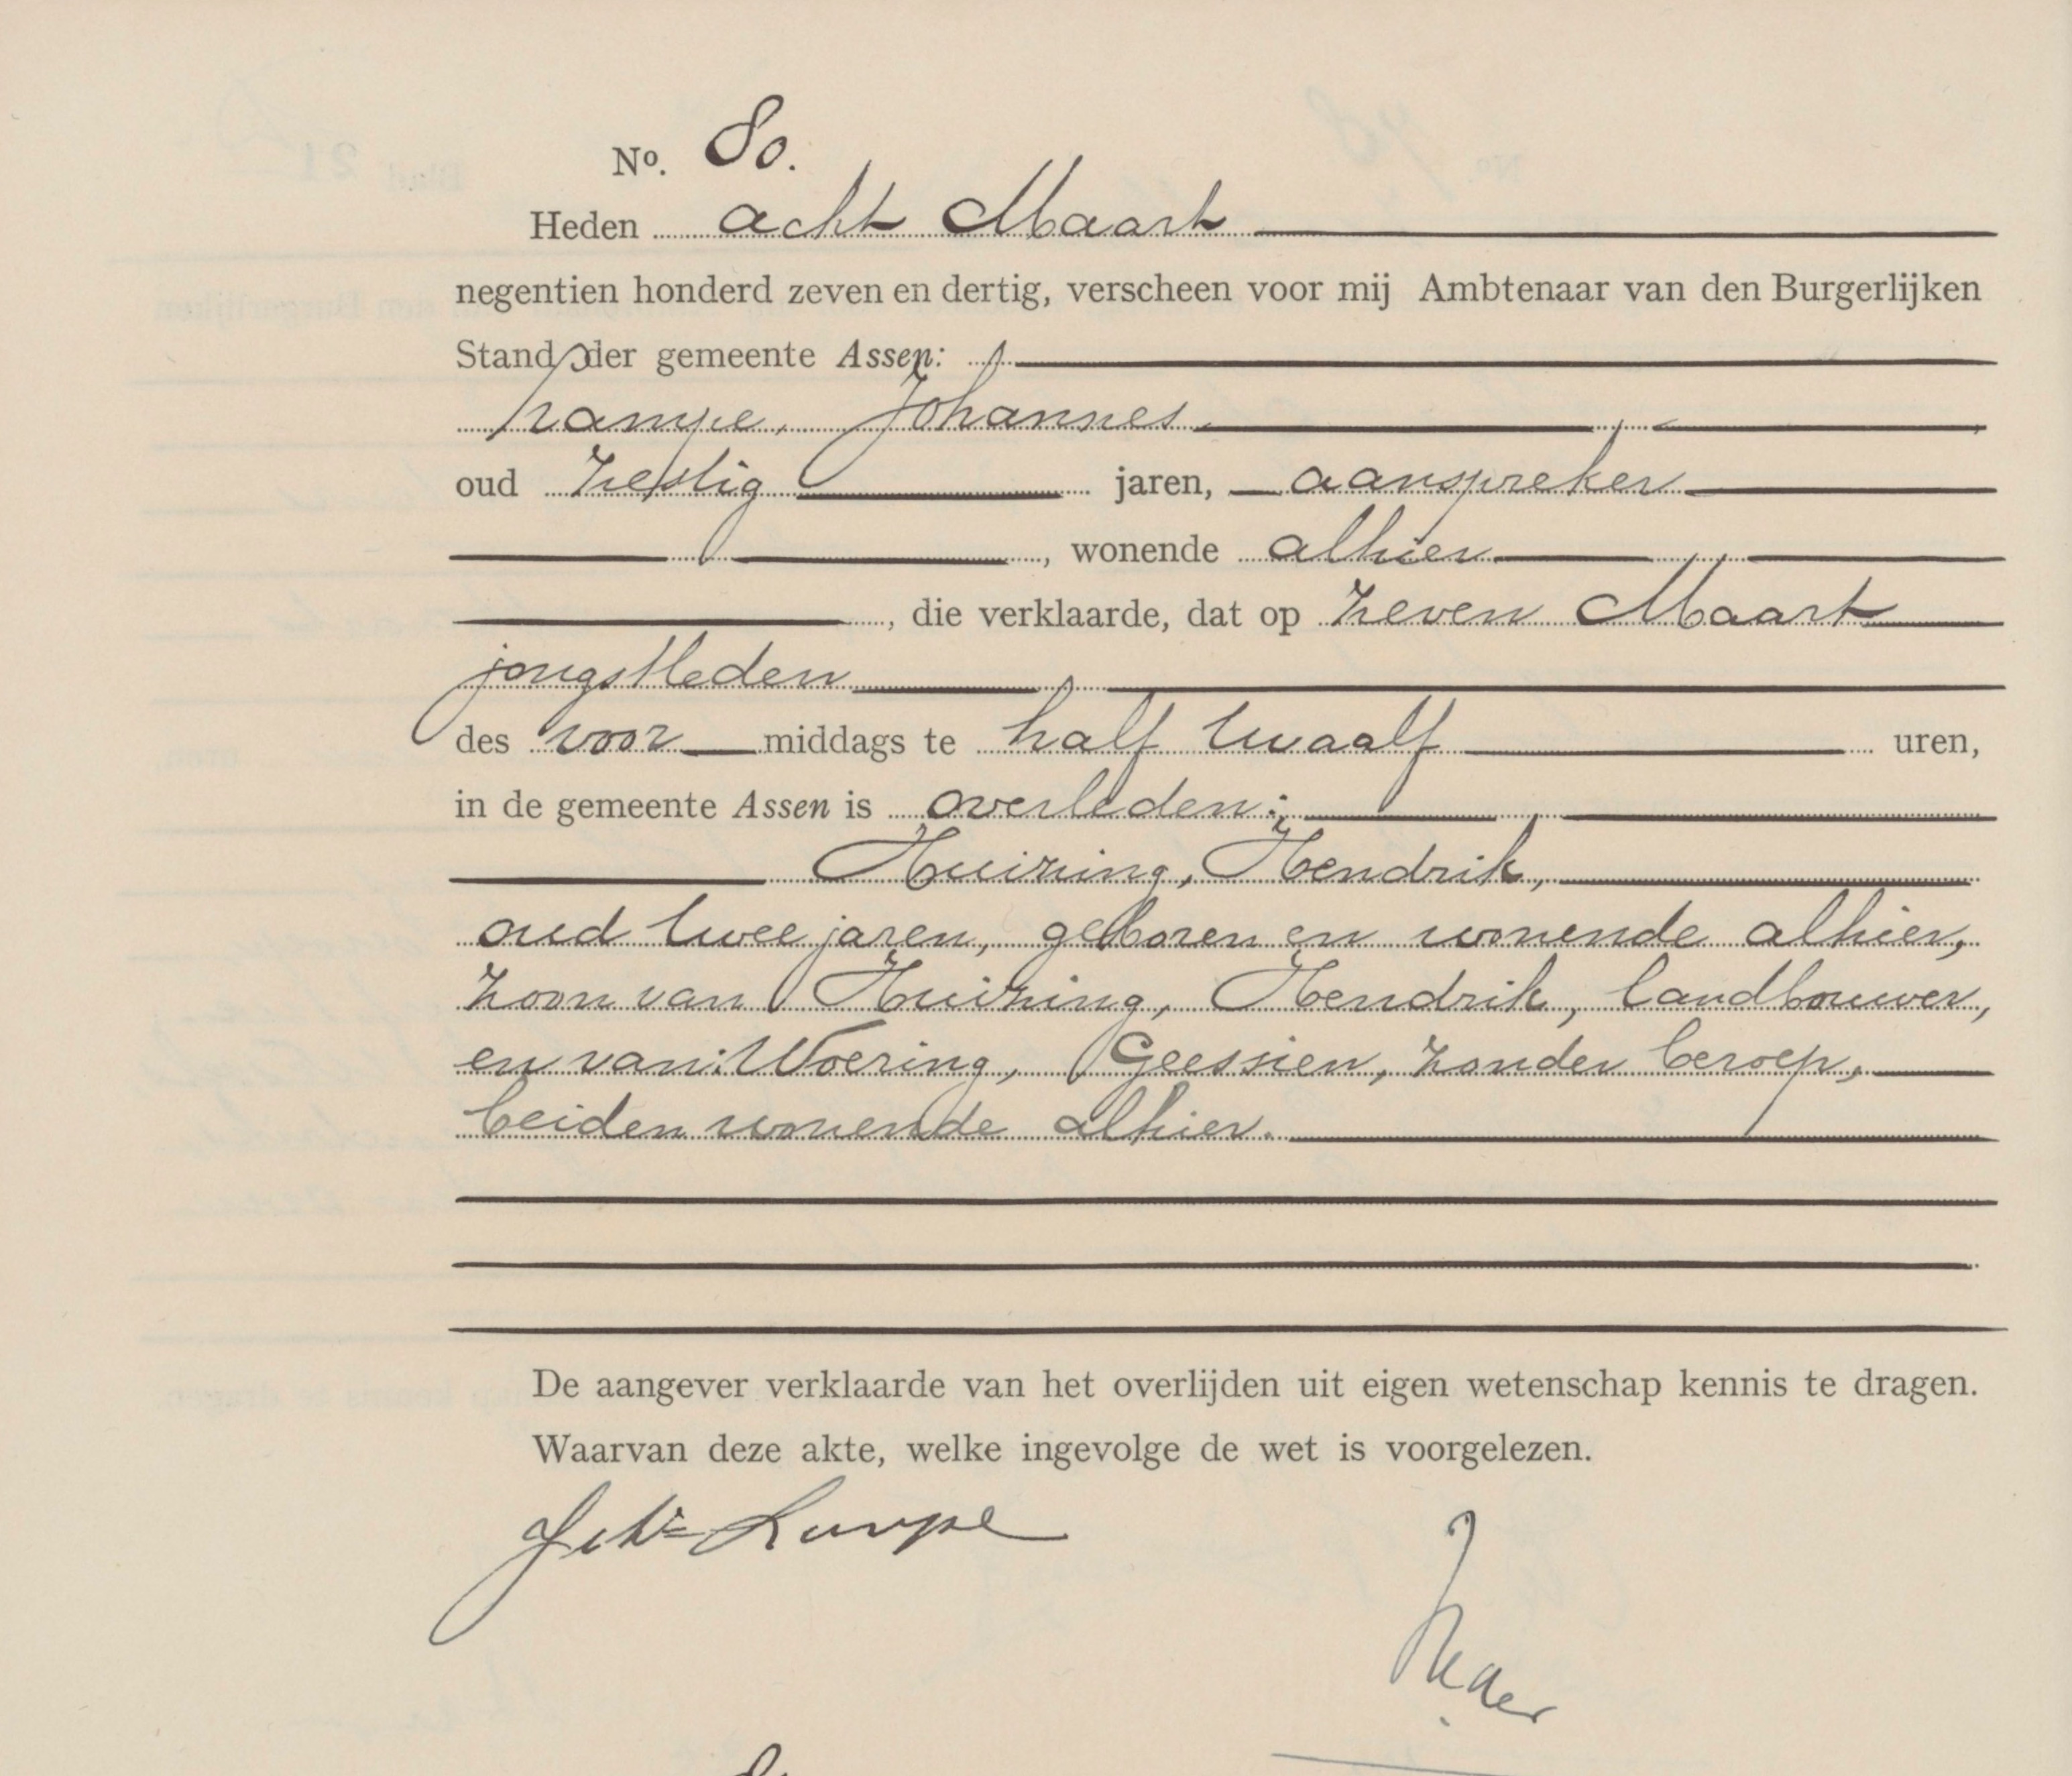 No. 80.
Heden acht Maart
negentien honderd zeven en dertig, verscheen voor mij Ambtenaar van den Burgerlijken
Stand der gemeente Assen:
Lampe, Johannes
oud zestig jaren, aanspreker
, wonende alhier
, die verklaarde, dat op zeven Maart
jongstleden
des voor middags te half twaalf uren,
in de gemeente Assen is overleden:
Huizing, Hendrik,
oud twee jaren, geboren en wonende alhier,
zoon van Huizing, Hendrik, landbouwer,
en van: Woering, Geessien, zonder beroep,
beiden wonende alhier.
De aangever verklaarde van het overlijden uit eigen wetenschap kennis te dragen.
Waarvan deze akte, welke ingevolge de wet is voorgelezen.
Lampe